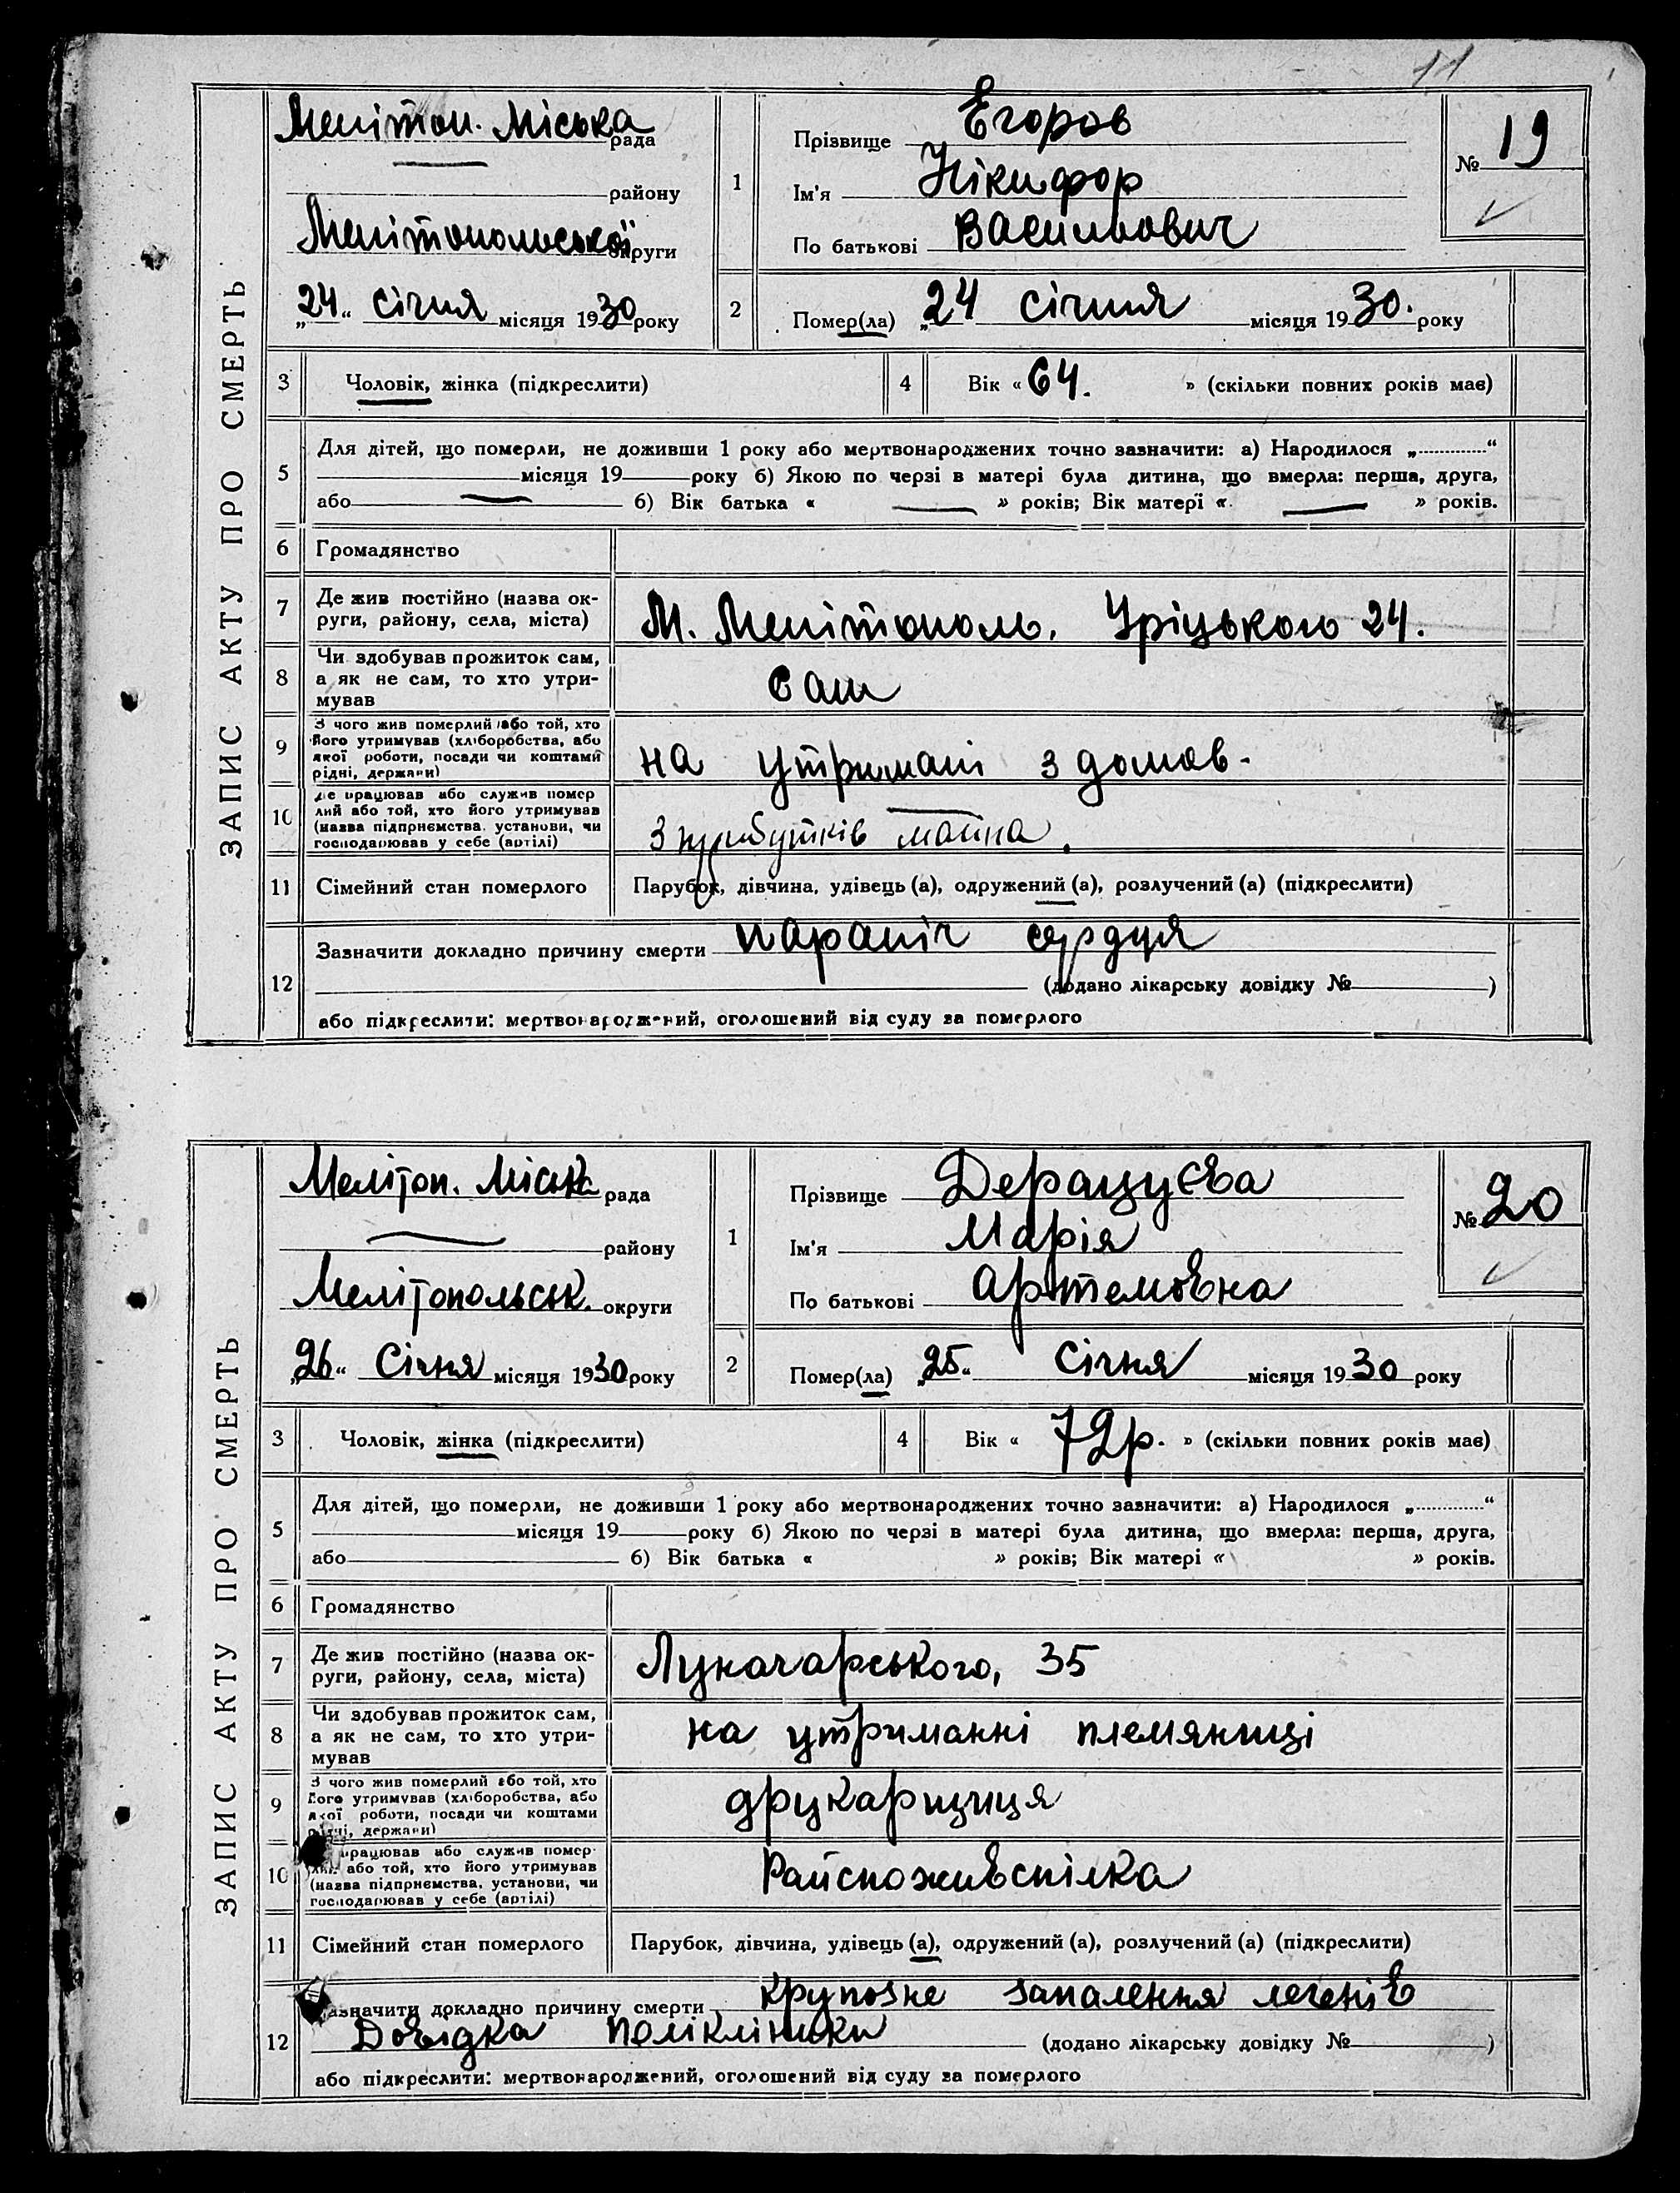 11
ЗАПИС АКТУ ПРО СМЕРТЬ
Мелітоп. Міська рада
району
Мелітопольської округи
„24“ січня місяця 1930 року
1
Прізвище Егоров
Ім'я Нікифор
По батькові Васильович
№ 19
2
Помер(ла) „24 січня місяця 1930. року
3
Чоловік, жінка (підкреслити)
4
Вік « 64. » (скільки повних років має)
5
Для дітей, що померли, не доживши 1 року або мертвонароджених точно зазначити: а) Народилося „ “
місяця 19 року б) Якою по черзі в матері була дитина, що вмерла: перша, друга,
або б) Вік батька « » років; Вік матері « » років.
6
Громадянство
7
Де жив постійно (назва ок-
руги, району, села, міста)
М. Мелітополь, Уріцького 24.
8
Чи здобував прожиток сам,
а як не сам, то хто утри-
мував
Сам
9
З чого жив померлий або той, хто
його утримував (хліборобства, або
якої роботи, посади чи коштами
рідні, держави)
на утримані з домов.
10
Де працював або служив помер
лий або той, хто його утримував
(назва підприємства, установи, чи
господарював у себе (артілі)
З прибутків майна.
11
Сімейний стан померлого
Парубок, дівчина, удівець (а), одружений (а), розлучений (а) (підкреслити)
12
Зазначити докладно причину смерти параліч сердця
(додано лікарську довідку № )
або підкреслити: мертвонароджений, оголошений від суду за померлого
ЗАПИС АКТУ ПРО СМЕРТЬ
Меліtоп. Міська рада
району
Мелітопольськ. округи
„26“ Січня місяця 1930 року
1
Прізвище
Ім'я Марія
По батькові Артемовна
№ 20
2
Помер(ла) „25“ Січня місяця 1930 року
3
Чоловік, жінка (підкреслити)
4
Вік « 72р. » (скільки повних років має)
5
Для дітей, що померли, не доживши 1 року або мертвонароджених точно зазначити: а) Народилося „ “
місяця 19 року б) Якою по черзі в матері була дитина, що вмерла: перша, друга,
або б) Вік батька « » років; Вік матері « » років.
6
Громадянство
7
Де жив постійно (назва ок-
руги, району, села, міста)
Луначарського, 35
8
Чи здобував прожиток сам,
а як не сам, то хто утри-
мував
на утриманні племянниці
9
З чого жив померлий або той, хто
його утримував (хліборобства, або
якої роботи, посади чи коштами
рідні, держави)
друкарщиця
10
працював або служив помер-
лий або той, хто його утримував
(назва підприємства, установи, чи
господарював у себе (артілі)
Райспоживспілка
11
Сімейний стан померлого
Парубок, дівчина, удівець (а), одружений (а), розлучений (а) (підкреслити)
12
Зазначити докладно причину смерти крупозне запалення легенів
Довідка поліклініки (додано лікарську довідку № )
або підкреслити: мертвонароджений, оголошений від суду за померлого